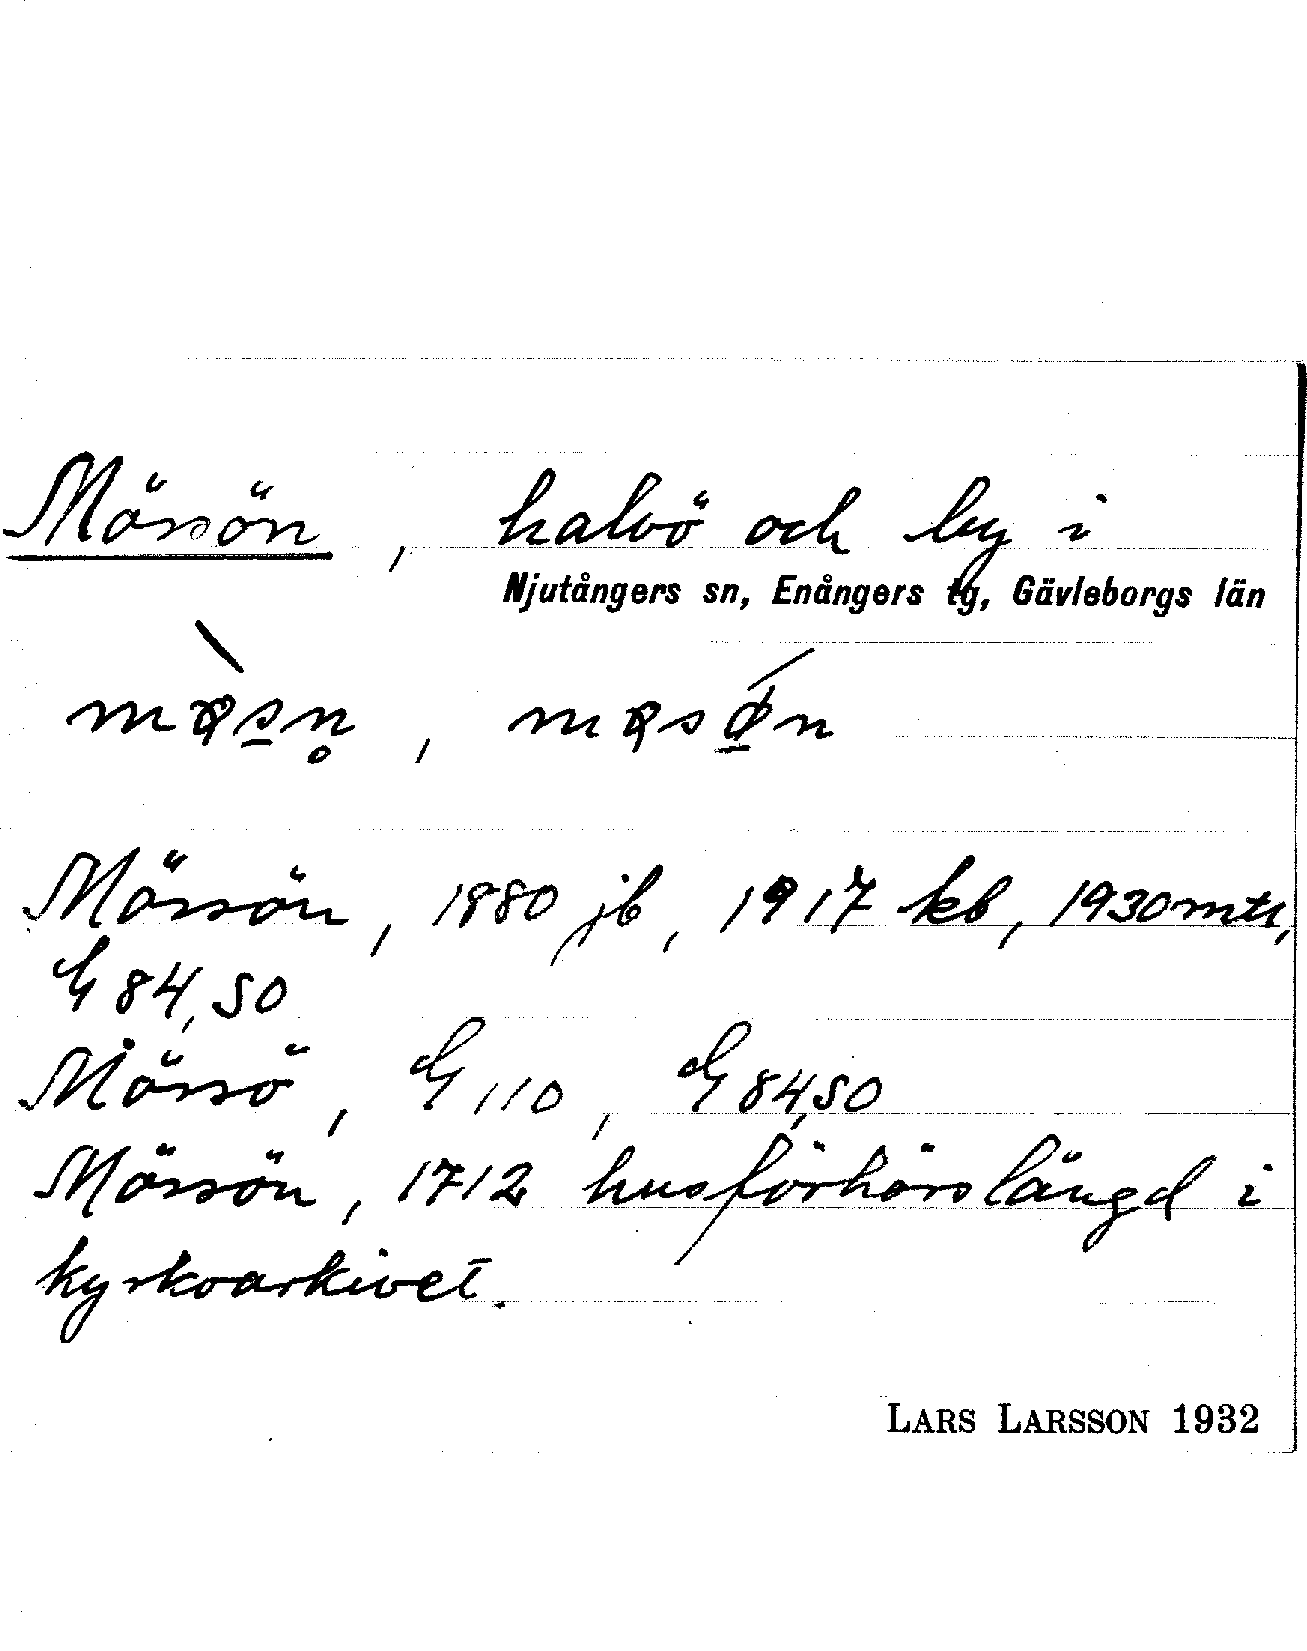 Mörsön, halvö och by i
Njutångers sn, Enångers tg, Gävleborgs län
Mörsön, 1880 jb, 1917 kb, 1930 mtl,
G 84,50
Mörsö, G 110, G 84,50
Mörsön, 1712 husförhörslängd i
kyrkoarkivet.
LARS LARSSON 1932